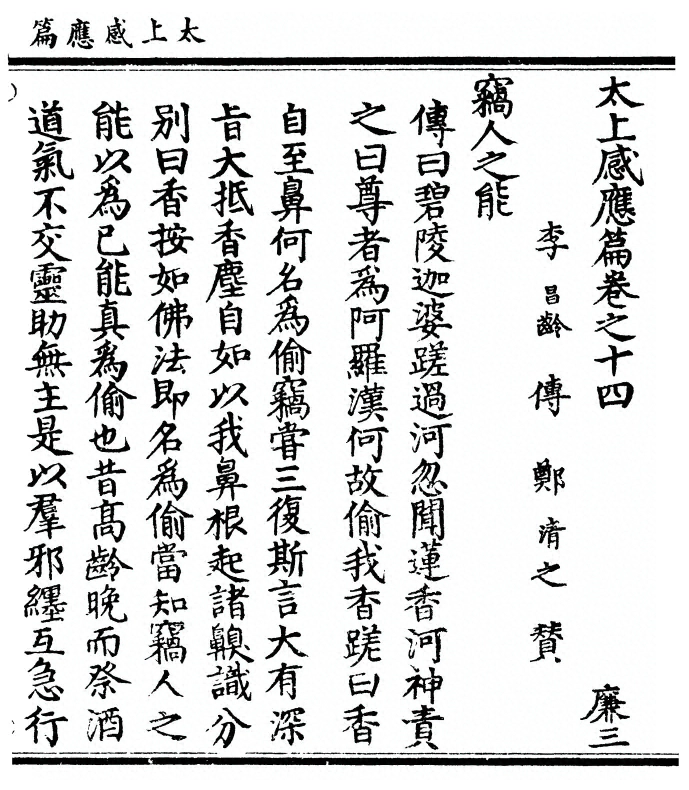 太上感應篇
太上感應篇卷之十四 廉三
李昌齡傳 鄭清之贊
竊人之能
傳曰碧陵迦婆蹉過河忽聞蓮香河神責
之曰尊者爲阿羅漢何故偷我香蹉曰香
自至鼻何名爲偷竊嘗三復斯言大有深
旨大抵香塵自如以我鼻根起諸䶑識分
別曰香按如佛法即名爲偷當知竊人之
能以爲已能真爲偷也昔高齡晚而祭酒
道氣不交靈助無主是以羣邪纏互急行